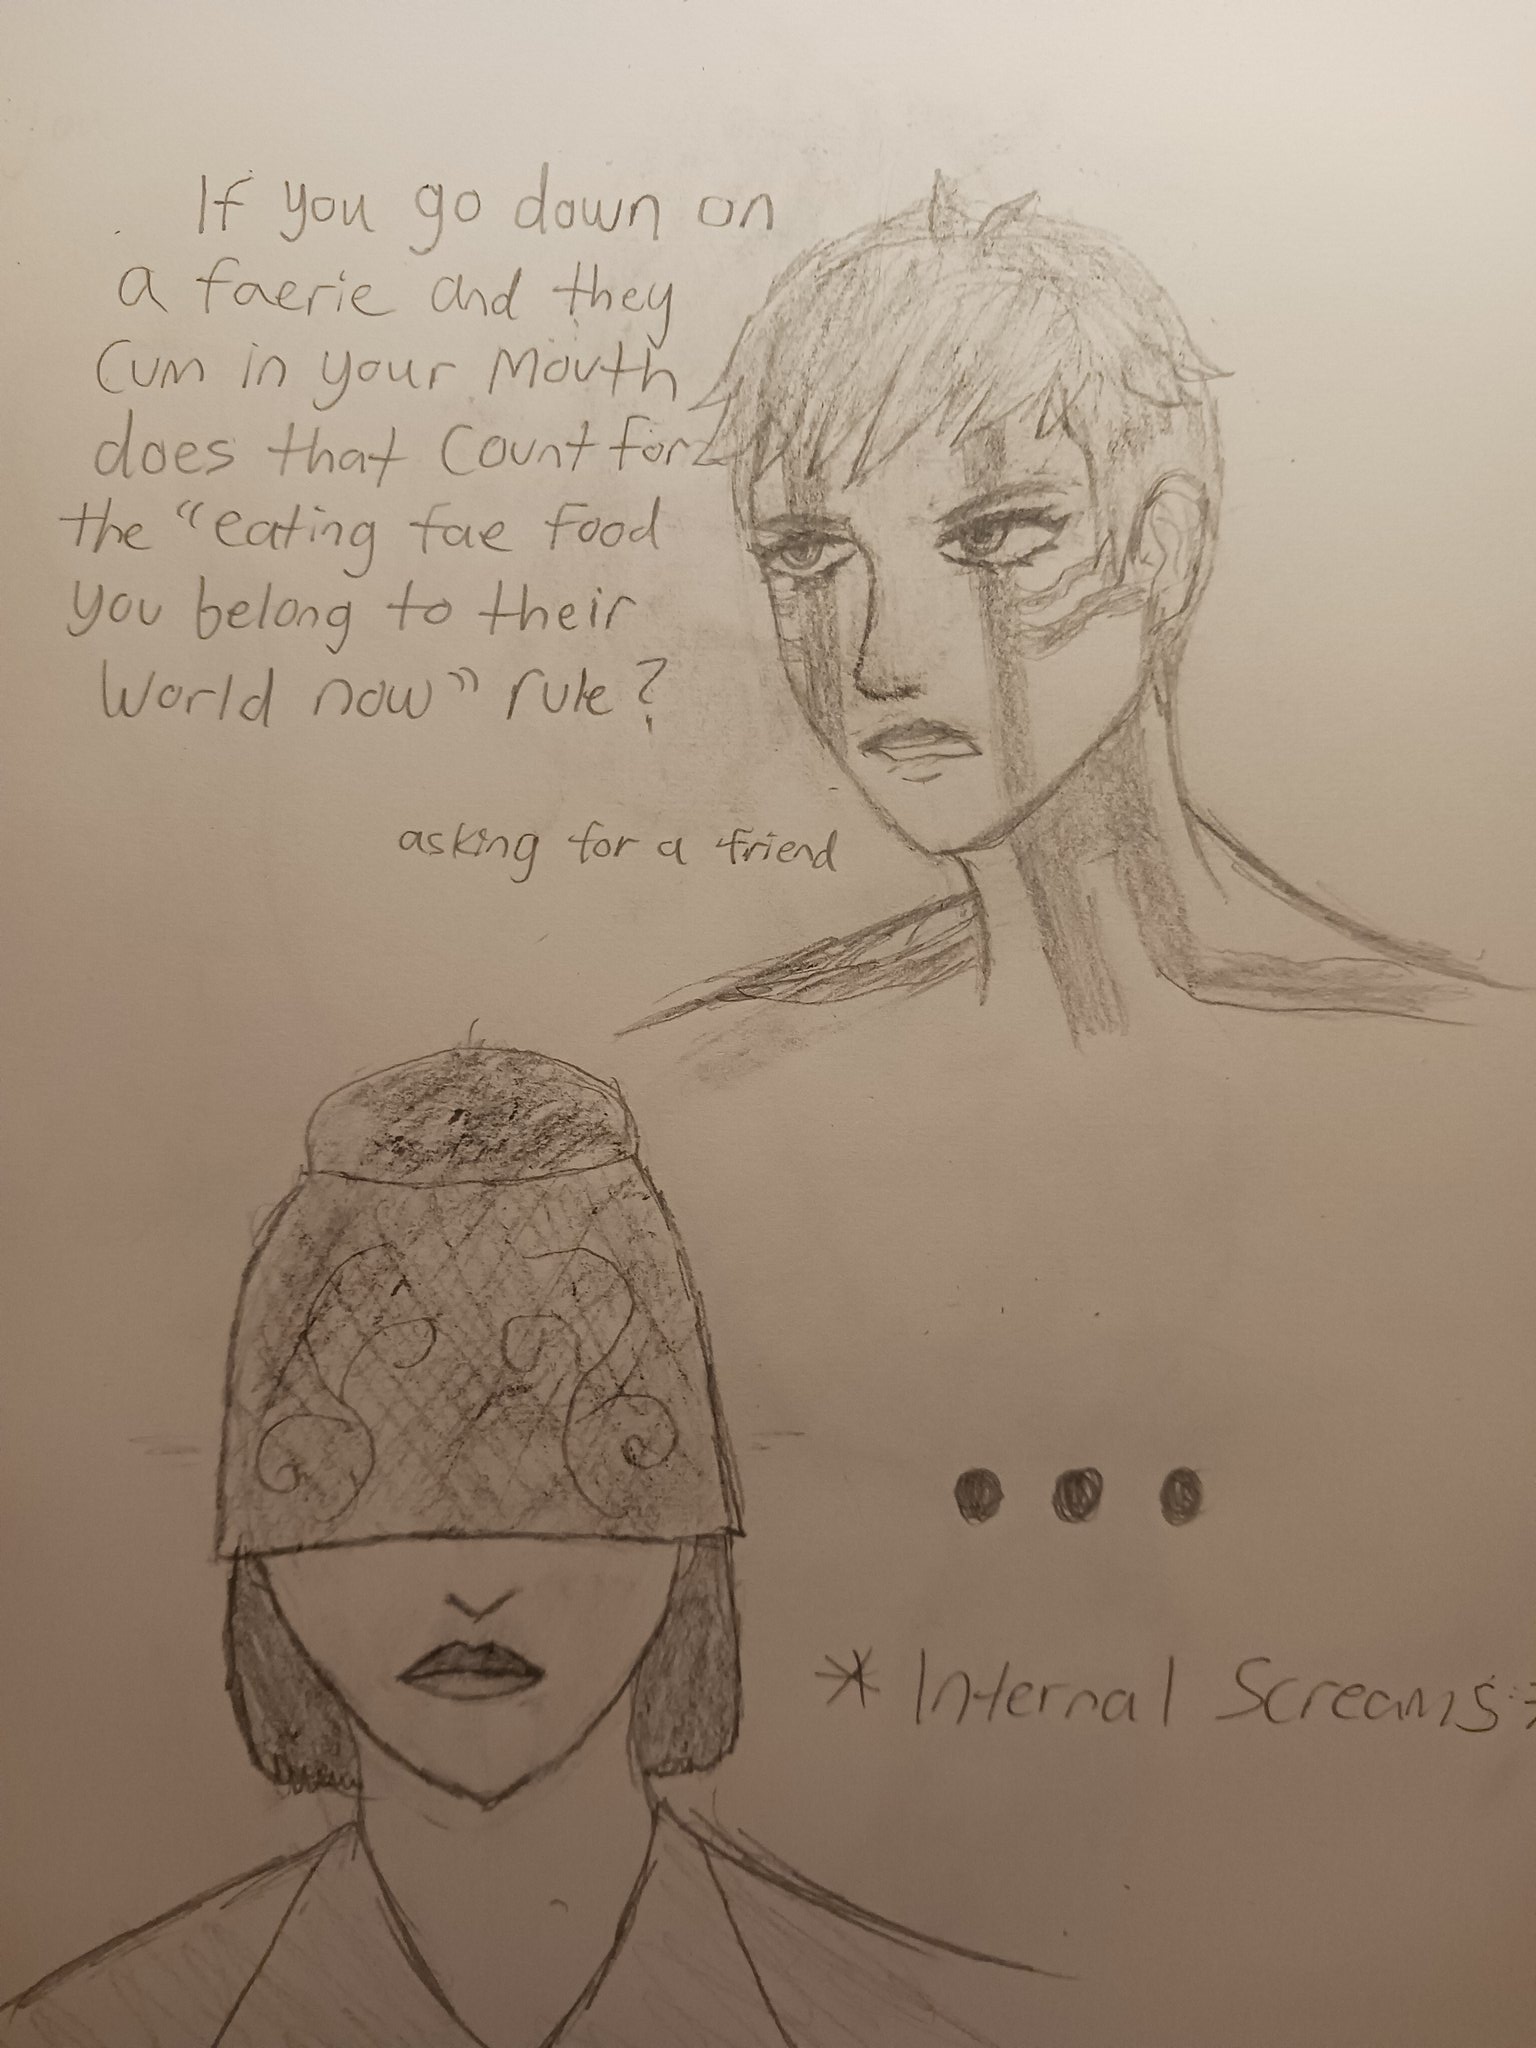 If you go down on
a faerie and they
Cum in your Mouth
does that Count for
the "eating fae food
you belong to their
World now" rule?
asking for a friend
...
*Internal Screams*